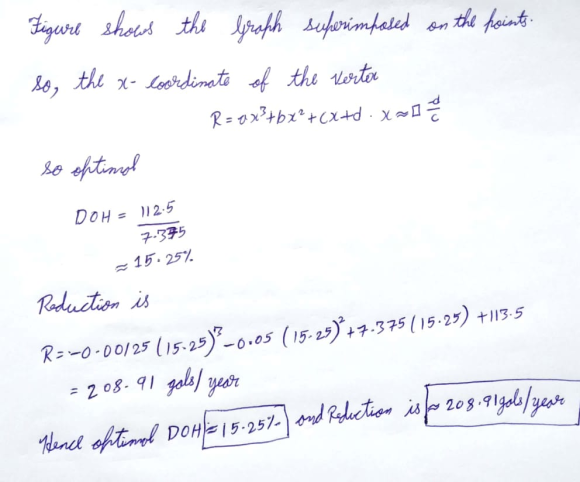 Figure shows the Graph superimposed on the points.
So, the x-coordinate of the vertex
R = ax³+bx²+cx+d . x≈□ d/c
so optimal
DOH = 112.5 / 7.375
≈ 15.25%
Reduction is
R=-0.00125 (15.25)³-0.05 (15.25)²+7.375(15.25)+113.5
= 208.91 gals/year
Hence optimal DOH = 15.25% and Reduction is ≈ 208.91gals/year